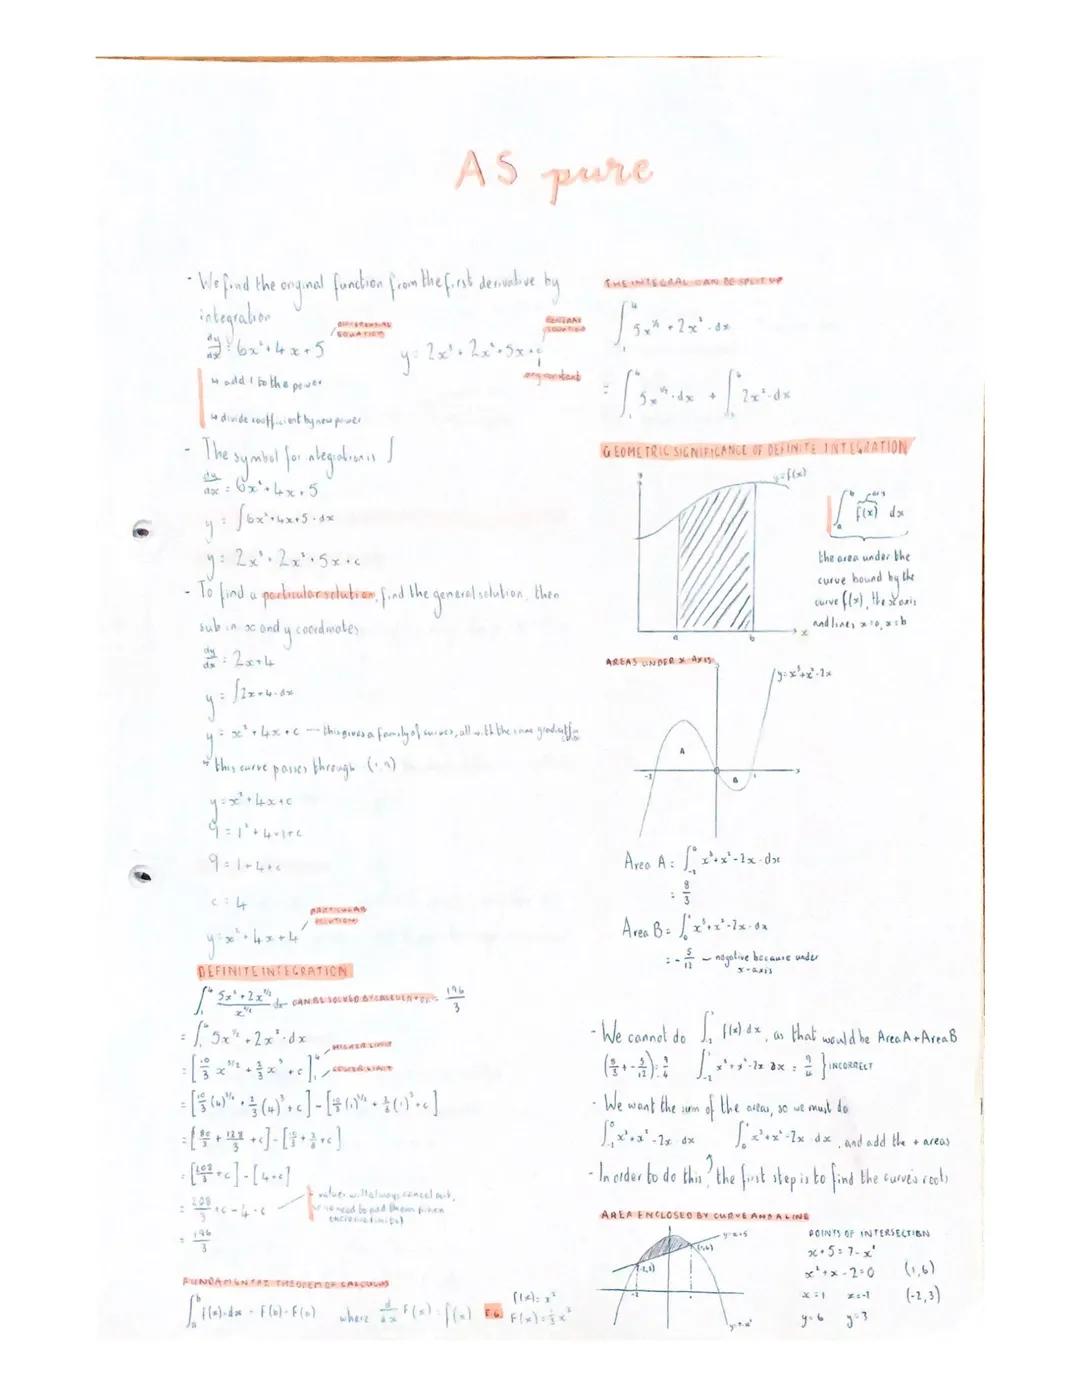 AS pure
- We find the original function from the first derivative by
integration
dy/dx = 6x² + 4x + 5
DIFFERENTIAL
EQUATION
y = 2x³ + 2x² + 5x + c
GENERAL
any constant
↳ add 1 to the power
↳ divide coefficient by new power
- The symbol for integration is ∫
dy/dx = 6x² + 4x + 5
y = ∫6x² + 4x + 5 · dx
y = 2x³ + 2x² + 5x + c
- To find a particular solution, find the general solution, then
sub in x and y coordinates
dy/dx = 2x + 4
y = ∫2x + 4 · dx
y = x² + 4x + c — this gives a family of curves, all with the same gradient
↳ this curve passes through (1,9)
y = x² + 4x + c
9 = 1² + 4×1 + c
9 = 1 + 4 + c
c = 4
PARTICULAR
SOLUTION
y = x² + 4x + 4
DEFINITE INTEGRATION
∫₁⁴ 5x² + 2x^5/2 / x^1/2 dx CAN BE SOLVED BY CALCULATOR = 196/3
= ∫₁⁴ 5x^3/2 + 2x² · dx
= [10/3 x^3/2 + 2/3 x³ + c]₁⁴
HIGHER LIMIT
LOWER LIMIT
= [10/3 (4)^3/2 + 2/3 (4)³ + c] - [10/3 (1)^3/2 + 2/3 (1)³ + c]
= [80/3 + 128/3 + c] - [10/3 + 2/3 + c]
= [208/3 + c] - [4 + c]
= 208/3 + c - 4 - c
values will always cancel out,
no need to add them (when
= 196/3
FUNDAMENTAL THEOREM OF CALCULUS
∫ₐᵇ f(x)·dx = F(b) - F(a) where d/dx F(x) = f(x) E.G. f(x) = x²
F(x) = 1/3 x³
THE INTEGRAL CAN BE SPLIT UP
∫₁⁴ 5x^1/2 + 2x² · dx
= ∫₁⁴ 5x^1/2 · dx + ∫₁⁴ 2x² · dx
GEOMETRIC SIGNIFICANCE OF DEFINITE INTEGRATION
y
y = f(x)
a
b
x
∫ₐᵇ f(x) dx
the area under the
curve bound by the
curve f(x), the x axis
and lines x=a, x=b
AREAS UNDER X-AXIS
y = x³ + x² - 2x
A
B
-2
1
x
Area A = ∫₋₂⁰ x³ + x² - 2x · dx
= 8/3
Area B = ∫₀¹ x³ + x² - 2x · dx
= - 5/12 — negative because under
x-axis
- We cannot do ∫₋₂¹ f(x) dx, as that would be Area A + Area B
(8/3 + - 5/12) = 9/4 ∫₋₂¹ x³ + x² - 2x dx = 9/4 } INCORRECT
- We want the sum of the areas, so we must do
∫₋₂⁰ x³ + x² - 2x dx ∫₀¹ x³ + x² - 2x · dx, and add the + areas
- In order to do this, the first step is to find the curve's roots
AREA ENCLOSED BY CURVE AND A LINE
y = x + 5
(1,6)
(-2,3)
-2
1
y = 7 - x²
POINTS OF INTERSECTION
x + 5 = 7 - x²
x² + x - 2 = 0 (1,6)
x = 1 x = -2 (-2,3)
y = 6 y = 3